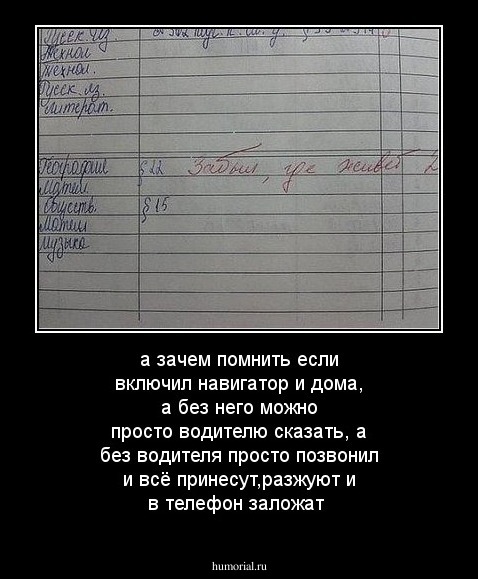 Русск. яз.
Технол
Технол.
Русск. яз.
Литерат.
География § 22 Забыл, где живёт 2
Матем.
Обществ. § 15
Матем
Музыка
а зачем помнить если
включил навигатор и дома,
а без него можно
просто водителю сказать, а
без водителя просто позвонил
и всё принесут,разжуют и
в телефон заложат
humorial.ru